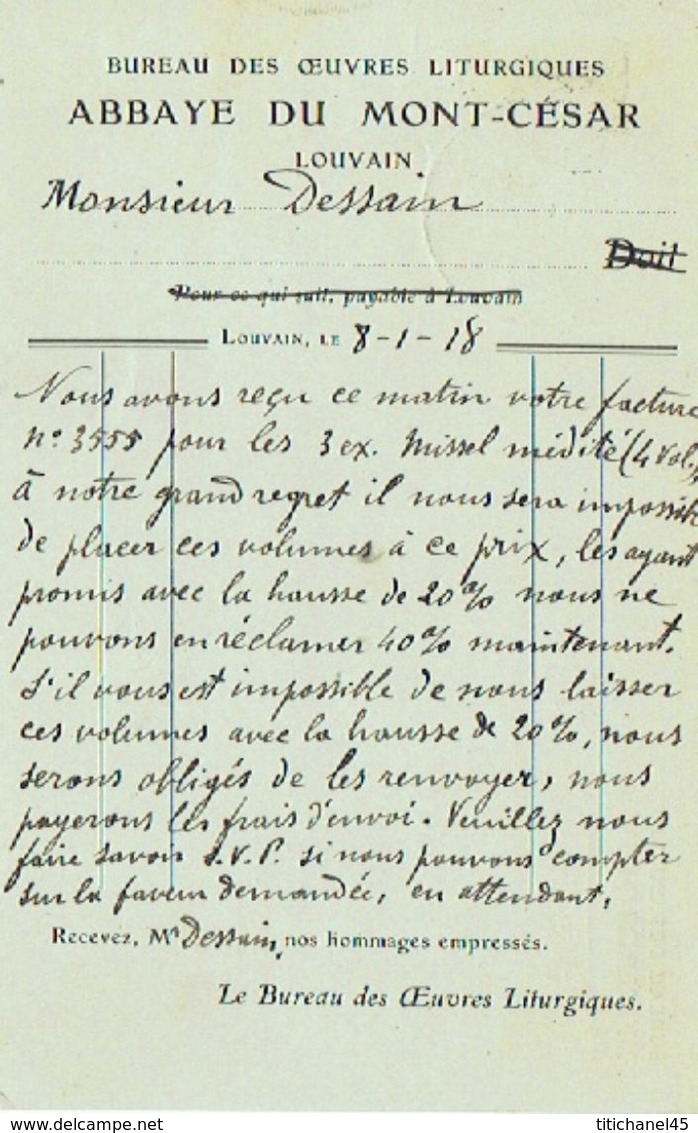 BUREAU DES ŒUVRES LITURGIQUES
ABBAYE DU MONT-CÉSAR
LOUVAIN
Monsieur Dessain
Doit
Pour ce qui suit, payable à Louvain
LOUVAIN, LE 8-1-18
Nous avons reçu ce matin votre facture
n° 3555 pour les 3 ex. Missel médité (4 vol.),
à notre grand regret il nous sera impossible
de placer ces volumes à ce prix, les ayant
promis avec la hausse de 20% nous ne
pouvons en réclamer 40% maintenant.
S'il vous est impossible de nous laisser
ces volumes avec la hausse de 20%, nous
serons obligés de les renvoyer, nous
payerons les frais d'envoi. Veuillez nous
faire savoir S.V.P. si nous pouvons compter
sur la faveur demandée, en attendant,
Recevez, Mr Dessain, nos hommages empressés.
Le Bureau des Œuvres Liturgiques.
delcampe.net
titichanel45